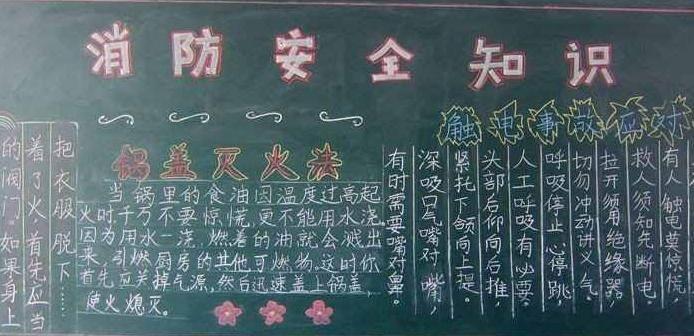 消防安全知识
的阀门。如果身上
着了火,首先应当
把衣服脱下……
锅盖灭火法
当锅里的食油因温度过高起
火时千万不要惊慌,更不能用水浇,
因为用水一浇,燃着的油就会溅出
来,引燃厨房的其他可燃物。这时你
首先应关掉气源,然后迅速盖上锅盖,
使火熄灭。
触电事故应对
有人触电莫惊慌,
救人须知先断电,
拉开须用绝缘器,
切勿冲动讲义气。
呼吸停止心停跳
人工呼吸有必要。
头部后仰向后推,
紧托下颌向上提。
深吸口气嘴对嘴,
有时需要嘴对鼻。